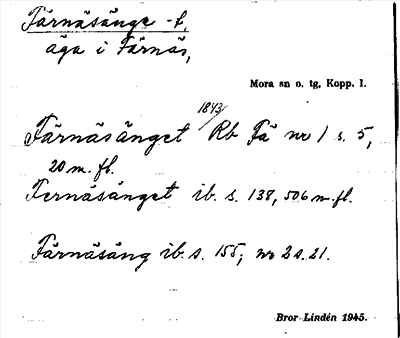 Färnäsänge -t,
äga i Färnäs,
Mora sn o. tg, Kopp. l.
1843
Färnäsänget Rb Fä nr 1 s. 5,
20 m. fl.
Fernäsänget ib. s. 138, 506 m. fl.
Färnäsäng ib. s. 155; nr 2 s. 21.
Bror Lindén 1945.